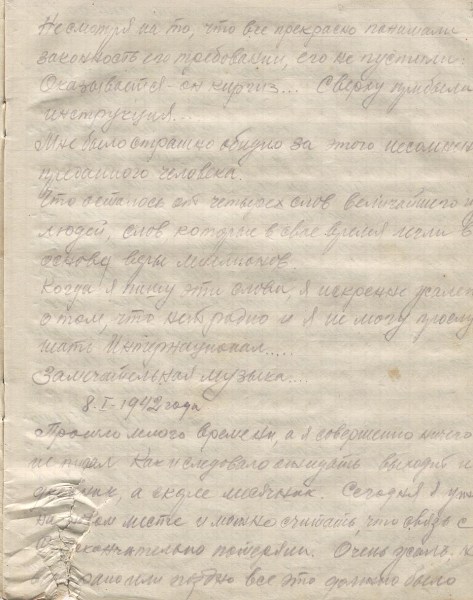 Несмотря на то, что все прекрасно понимали
законность его требований, его не пустили.
Оказывается - он киргиз... Сверху прибыла
инструкция...
Мне было страшно обидно за этого несомнен
преданного человека.
Что осталось от четырех слов величайшего и
людей, слов которые в свое время легли в
основу веры миллионов.
Когда я пишу эти слова, я искренне жалею
о том, что нет радио и я не могу прослу
шать Интернационал.....
Замечательная музыка....
8.I-1942 года
Прошло много времени, а я совершенно ничего
не писал Как и следовало ожидать выходит н
дневник, а скорее Сегодня я уж
на месте и можно считать, что связь с
окончательно потеряли. Очень жаль, н
рано или поздно все это должно было